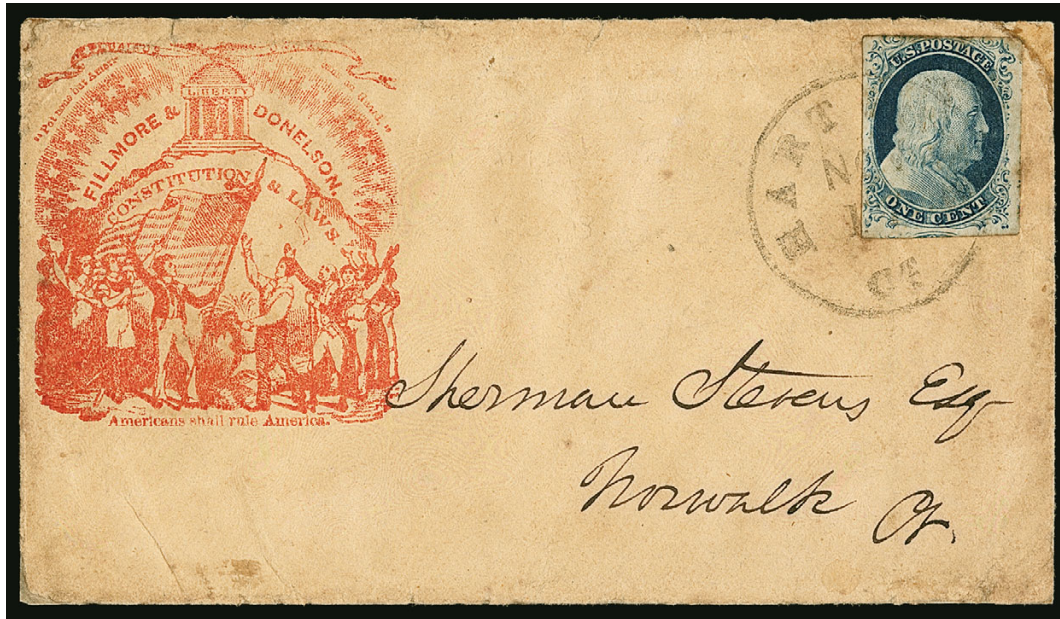 "Put none but Amer-
LIBERTY
FILLMORE & DONELSON
CONSTITUTION & LAWS.
Americans shall rule America.
U.S. POSTAGE
ONE CENT
HART
CT
Sherman Stevens Esq
Norwalk Ct.